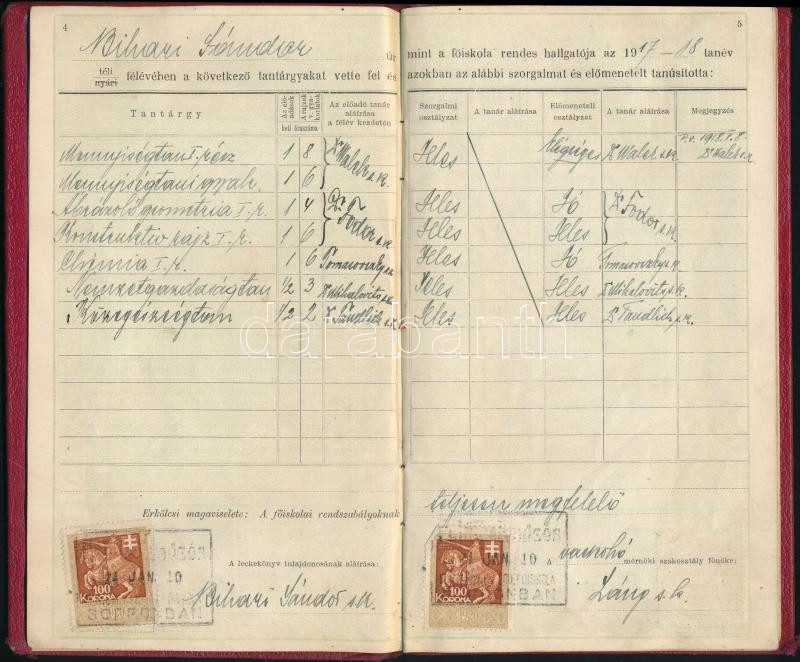 4
Bihari Sándor úr
téli
nyári félévében a következő tantárgyakat vette fel és
Tantárgy
Az elő-
adások
A rajzok
v. gya-
korlatok
heti óraszáma
Az előadó tanár
aláírása
a félév kezdetén
Mennyiségtan I. rész 1 8 Dr Walek s.k.
Mennyiségtani gyak. 1 6
Ábrázoló geometria I. r. 1 4 Dr. Fodor s.k.
Konstruktiv rajz I. r. 1 6
Chémia I. r. 1 6
Nemzetgazdaságtan 1/2 3 Dr Mihalovits s.k.
Közegészségtan 1/2 2 Dr Tandlich s.k.
Erkölcsi magaviselete: A főiskolai rendszabályoknak
A leckekönyv tulajdonosának aláírása:
Bihari Sándor s.k.
100
KORONA
24 JAN. 10
SOPRONBAN
5
mint a főiskola rendes hallgatója az 1917-18 tanév
azokban az alábbi szorgalmat és előmenetelt tanúsította:
Szorgalmi
osztályzat
A tanár aláírása
Előmeneteli
osztályzat
A tanár aláírása
Megjegyzés
Jeles Elégséges Dr Walek s.k.
Dr Walek s.k.
Jeles Jó Dr Fodor s.k.
Jeles Jeles
Jeles Jó
Jeles Jeles Dr Mihalovits s.k.
Jeles Jeles Dr Tandlich s.k.
teljesen megfelelő
A vaskohó mérnöki szakosztály főnöke:
Láng s.k.
100
KORONA
JAN. 10
darabanth